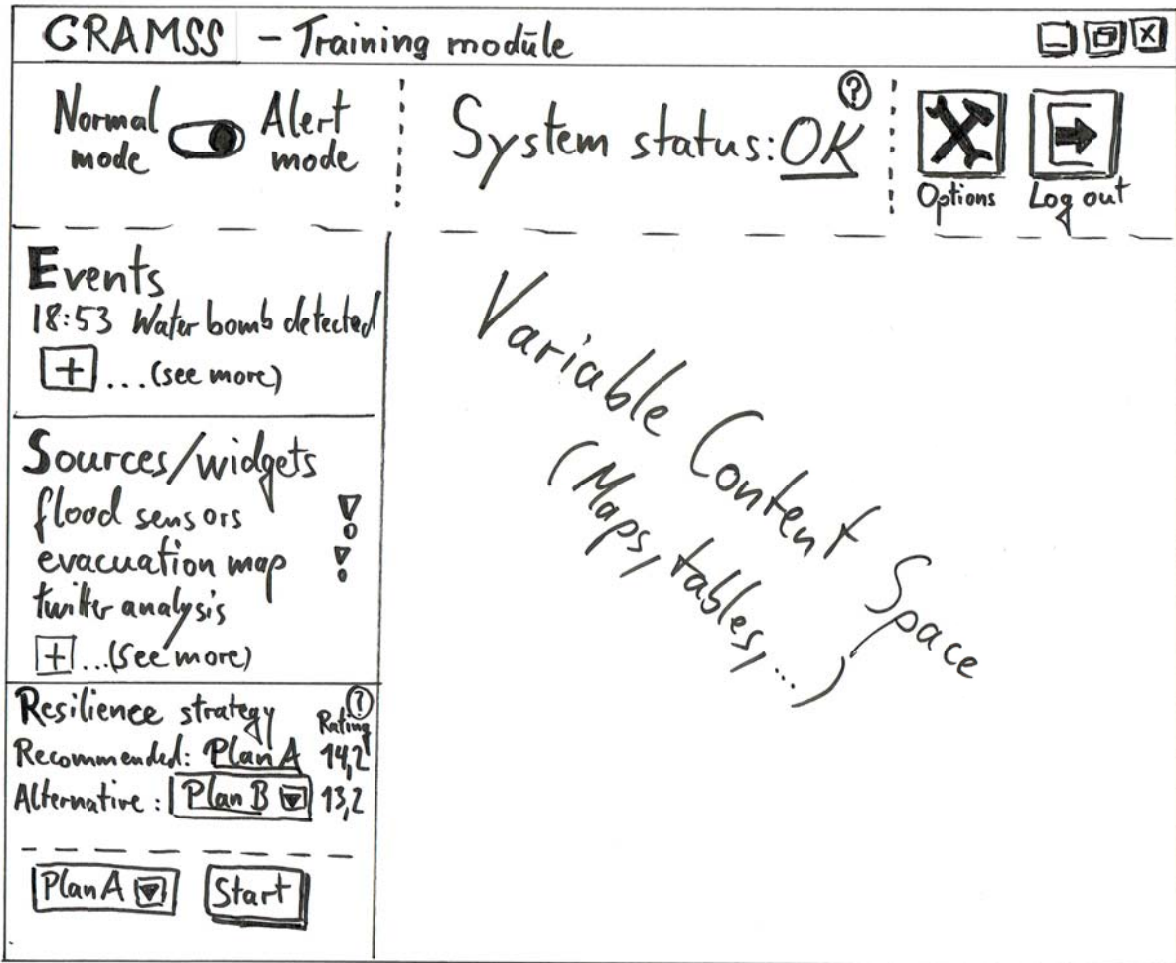 CRAMSS - Training module
Normal mode
Alert mode
System status: OK
?
Options
Log out
Events
18:53 Water bomb detected
+ ...(see more)
Sources/widgets
flood sensors !
evacuation map !
twitter analysis
+ ...(see more)
Resilience strategy ?
Rating
Recommended: Plan A 14,2
Alternative: Plan B 13,2
Plan A
Start
Variable Content Space
(Maps, tables, ...)